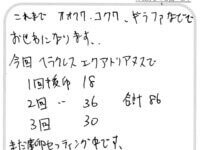 これまで オオクワ、コクワ、ギラファなどで
お世話になります。
今回 ヘラクレス エクアトリアヌスで
1回採卵 18
2回 〃 36 合計 86
3回 30
まだ産卵セッティング中です、